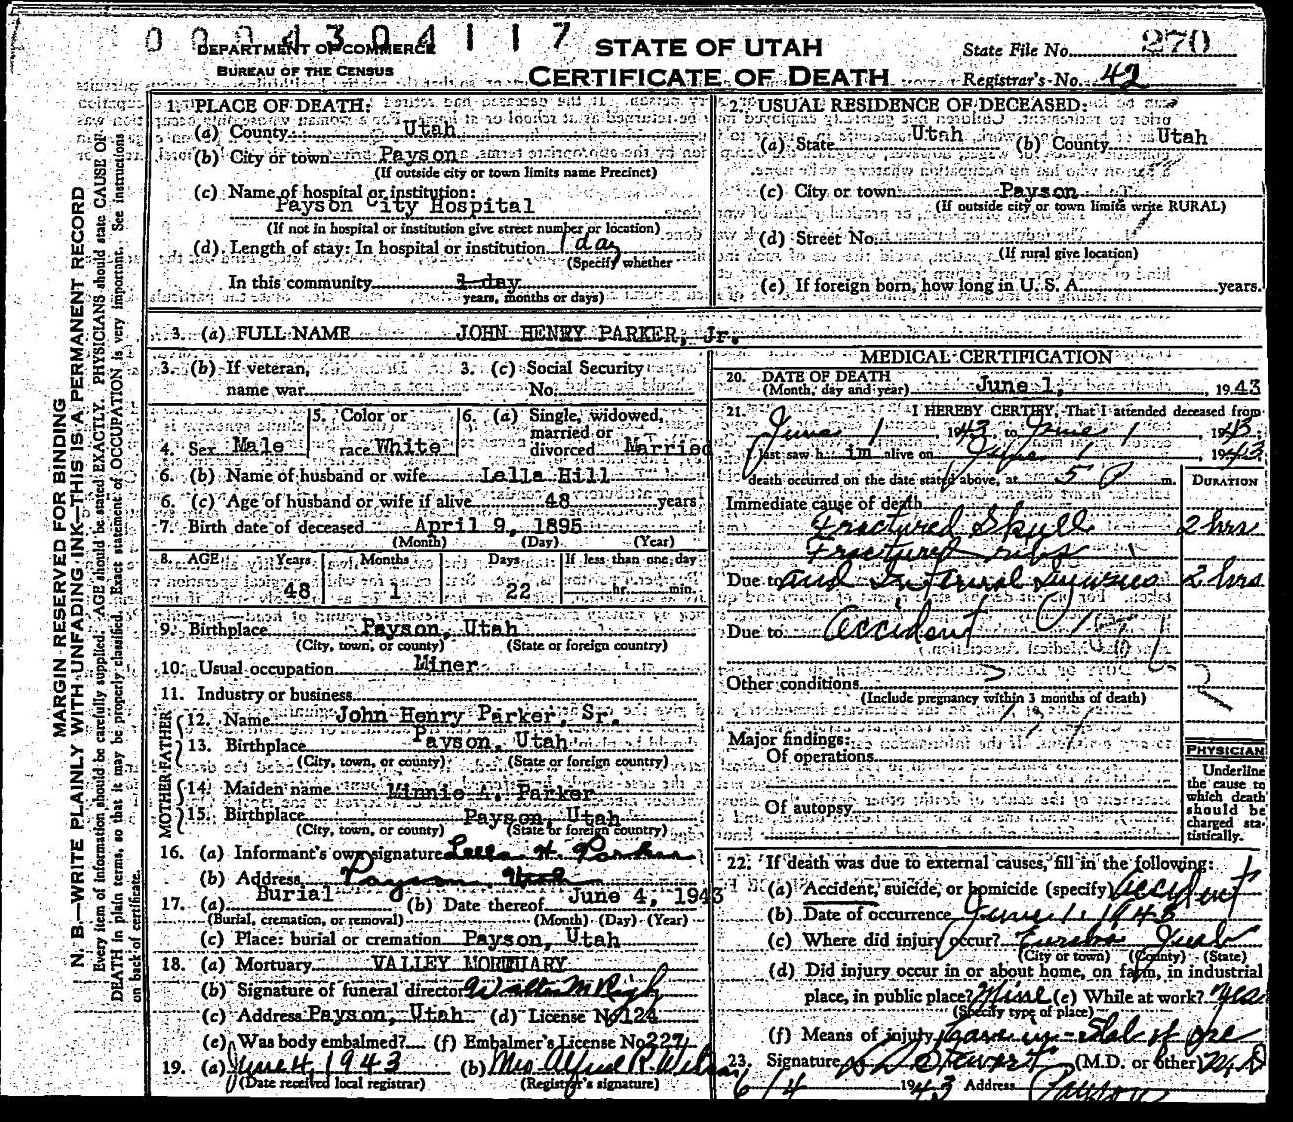 0004304117
DEPARTMENT OF COMMERCE
BUREAU OF THE CENSUS
STATE OF UTAH
CERTIFICATE OF DEATH
State File No. 270
Registrar's No. 42
MARGIN RESERVED FOR BINDING
N. B.—WRITE PLAINLY WITH UNFADING INK—THIS IS A PERMANENT RECORD
Every item of information should be carefully supplied. AGE should be stated EXACTLY. PHYSICIANS should state CAUSE OF
DEATH in plain terms, so that it may be properly classified. Exact statement of OCCUPATION is very important. See instructions
on back of certificate.
1. PLACE OF DEATH:
(a) County Utah
(b) City or town Payson
(If outside city or town limits name Precinct)
(c) Name of hospital or institution:
Payson City Hospital
(If not in hospital or institution give street number or location)
(d) Length of stay: In hospital or institution 1 day
(Specify whether
In this community 1 day
years, months or days)
2. USUAL RESIDENCE OF DECEASED:
(a) State Utah (b) County Utah
(c) City or town Payson
(If outside city or town limits write RURAL)
(d) Street No.
(If rural give location)
(e) If foreign born, how long in U. S. A. years.
3. (a) FULL NAME JOHN HENRY PARKER, Jr.
3. (b) If veteran, name war
3. (c) Social Security No.
4. Sex Male
5. Color or race White
6. (a) Single, widowed, married or divorced Married
6. (b) Name of husband or wife Lella Hill
6. (c) Age of husband or wife if alive 48 years
7. Birth date of deceased April 9, 1895
(Month) (Day) (Year)
8. AGE Years Months Days If less than one day
48 1 22 hr. min.
9. Birthplace Payson, Utah
(City, town, or county) (State or foreign country)
10. Usual occupation Miner
11. Industry or business
FATHER
12. Name John Henry Parker, Sr.
13. Birthplace Payson, Utah
(City, town, or county) (State or foreign country)
MOTHER
14. Maiden name Minnie A. Parker
15. Birthplace Payson, Utah
(City, town, or county) (State or foreign country)
16. (a) Informant's own signature Lella H. Parker
(b) Address Payson, Utah
17. (a) Burial (b) Date thereof June 4, 1943
(Burial, cremation, or removal) (Month) (Day) (Year)
(c) Place: burial or cremation Payson, Utah
18. (a) Mortuary VALLEY MORTUARY
(b) Signature of funeral director
(c) Address Payson, Utah (d) License No 124
(e) Was body embalmed? (f) Embalmer's License No 227
19. (a) June 4, 1943 (b) Mrs Alfred R.
(Date received local registrar) (Registrar's signature)
MEDICAL CERTIFICATION
20. DATE OF DEATH
(Month, day and year) June 1, 1943
21. I HEREBY CERTIFY, That I attended deceased from
June 1, 1943 to June 1, 1943
I last saw him alive on June 1 1943
death occurred on the date stated above, at 5 P m.
DURATION
Immediate cause of death
Fractured Skull 2 hrs
Fractured ribs
Due to and Internal Injuries 2 hrs
Due to Accident
Other conditions
(Include pregnancy within 3 months of death)
Major findings:
Of operations
Of autopsy
PHYSICIAN
Underline
the cause to
which death
should be
charged sta-
tistically.
22. If death was due to external causes, fill in the following:
(a) Accident, suicide, or homicide (specify) Accident
(b) Date of occurrence June 1, 1943
(c) Where did injury occur? Eureka Juab
(City or town) (County) (State)
(d) Did injury occur in or about home, on farm, in industrial
place, in public place? Mine (e) While at work? Yes
(Specify type of place)
(f) Means of injury Cave in - Slab of ore
23. Signature Stewart (M.D. or other) M.D
6/4 1943 Address Payson